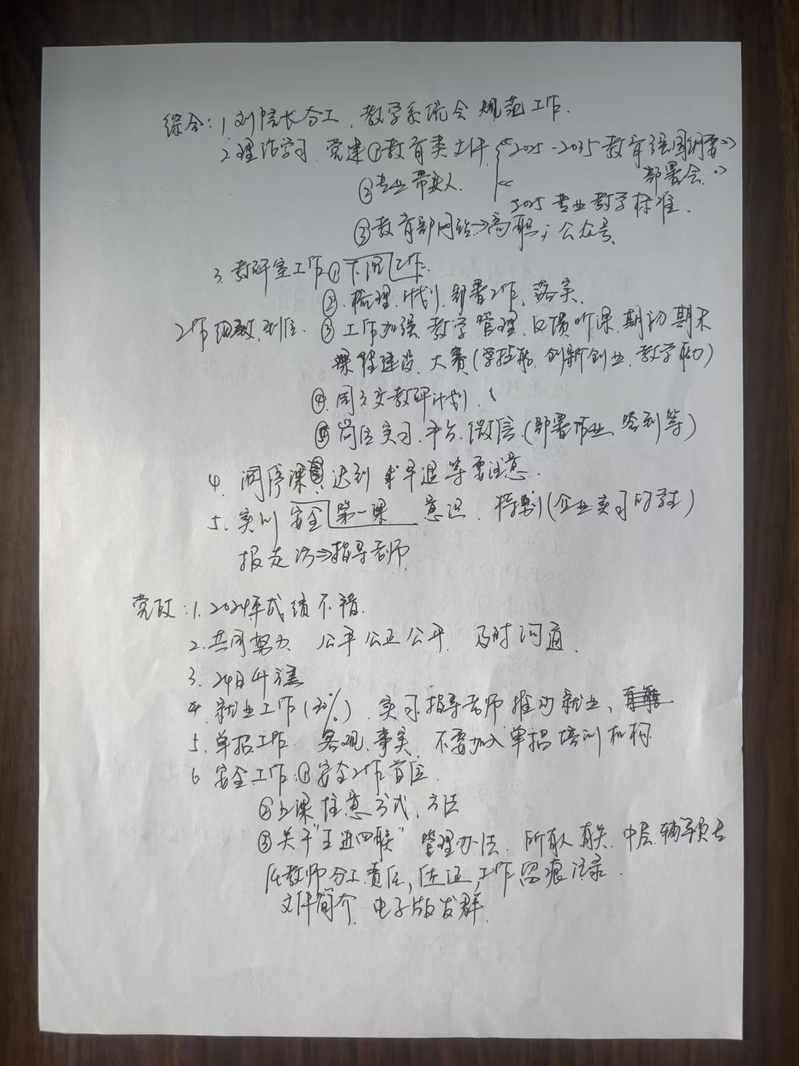 综合：1 刘院长分工、教学系统会 规范工作.
2.理论学习 党建①教育类文件 《2025-2035教育强国纲要》
②专业带头人 《 部署会 》
2025专业教学标准.
③教育部网站→高职；公众号
3.教研室工作①下沉工作.
②.梳理.计划.部署工作、落实.
工作 到位. ③工作加强 教学管理 口惯听课.期初期末
课程建设、大赛(学技能.创新创业.教学能力)
④.周三交教研计划.
⑤岗位实习.平台.微信.(部署作业.签到等)
4.调停课 迟到 早退等要注意.
5.实训 安全第一课 意识. 特别(企业实习的学生)
报走访→指导老师.
党政：1.2024年成绩不错.
2.共同努力 公平公正公开 及时沟通.
3.24日开
4.就业工作(30%)、实习指导老师推动就业、
5.单招工作 客观、事实、不要加入单招培训机构.
6.安全工作:①安全工作首位.
②上课注意方式、方法
③关于"五进四联"管理办法.所有人有关.中层.辅导员专
任教师分工责任,佐证,工作留痕记录.
文件简介.电子版发群.